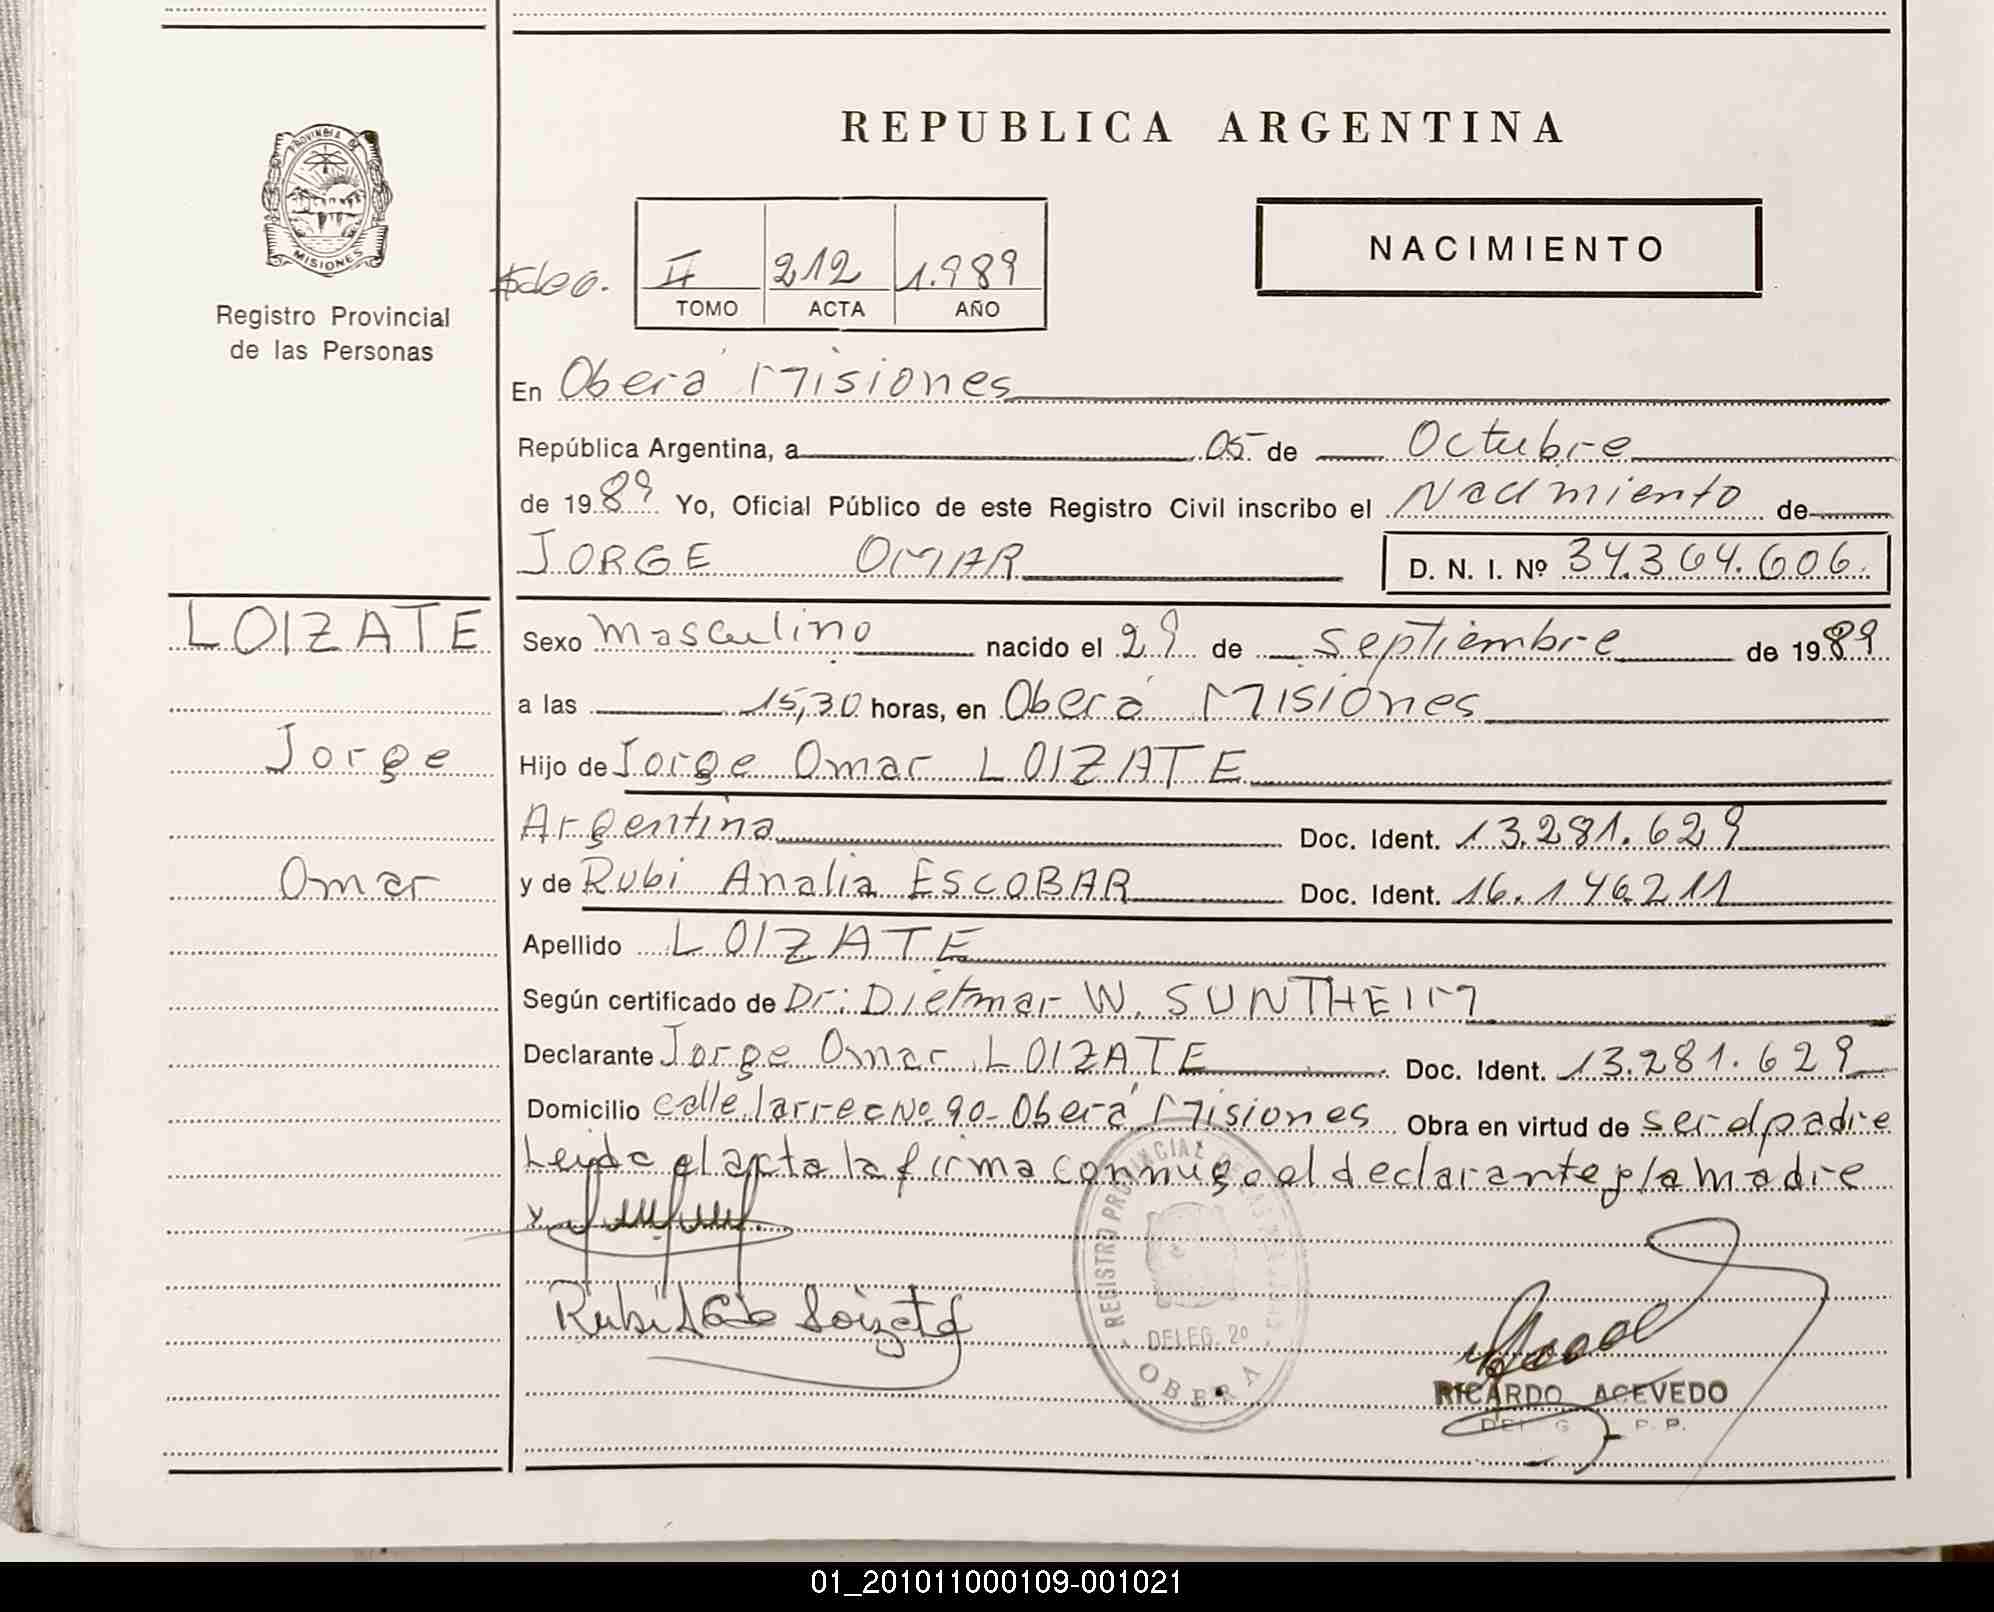 REPUBLICA ARGENTINA
PROVINCIA DE
MISIONES
Registro Provincial
de las Personas
II 212 1.989
TOMO ACTA AÑO
NACIMIENTO
En Oberá Misiones
República Argentina, a 05 de Octubre
de 1989 Yo, Oficial Público de este Registro Civil inscribo el Nacimiento de
JORGE OMAR D. N. I. Nº 34.364.606.
LOIZATE
Jorge
Omar
Sexo masculino nacido el 29 de septiembre de 1989
a las 15,30 horas, en Oberá Misiones
Hijo de Jorge Omar LOIZATE
Argentina Doc. Ident. 13.281.629
y de Rubi Analia ESCOBAR Doc. Ident. 16.146.211
Apellido LOIZATE
Según certificado de Dr: Dietmar W. SUNTHEIM
Declarante Jorge Omar LOIZATE Doc. Ident. 13.281.629
Domicilio calle Larrec Nº 90- Oberá Misiones Obra en virtud de ser el padre
Leida el acta la firma conmigo el declarante y la madre
REGISTRO PROVINCIAL DE LAS
DELEG. 2º
OBERA
RICARDO ACEVEDO
01_201011000109-001021